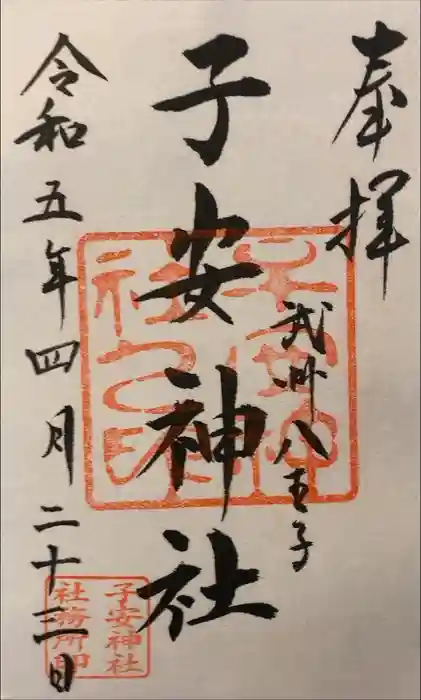 奉拝
武州八王子
子安神社
令和五年四月二十三日
子安神社
社務所印